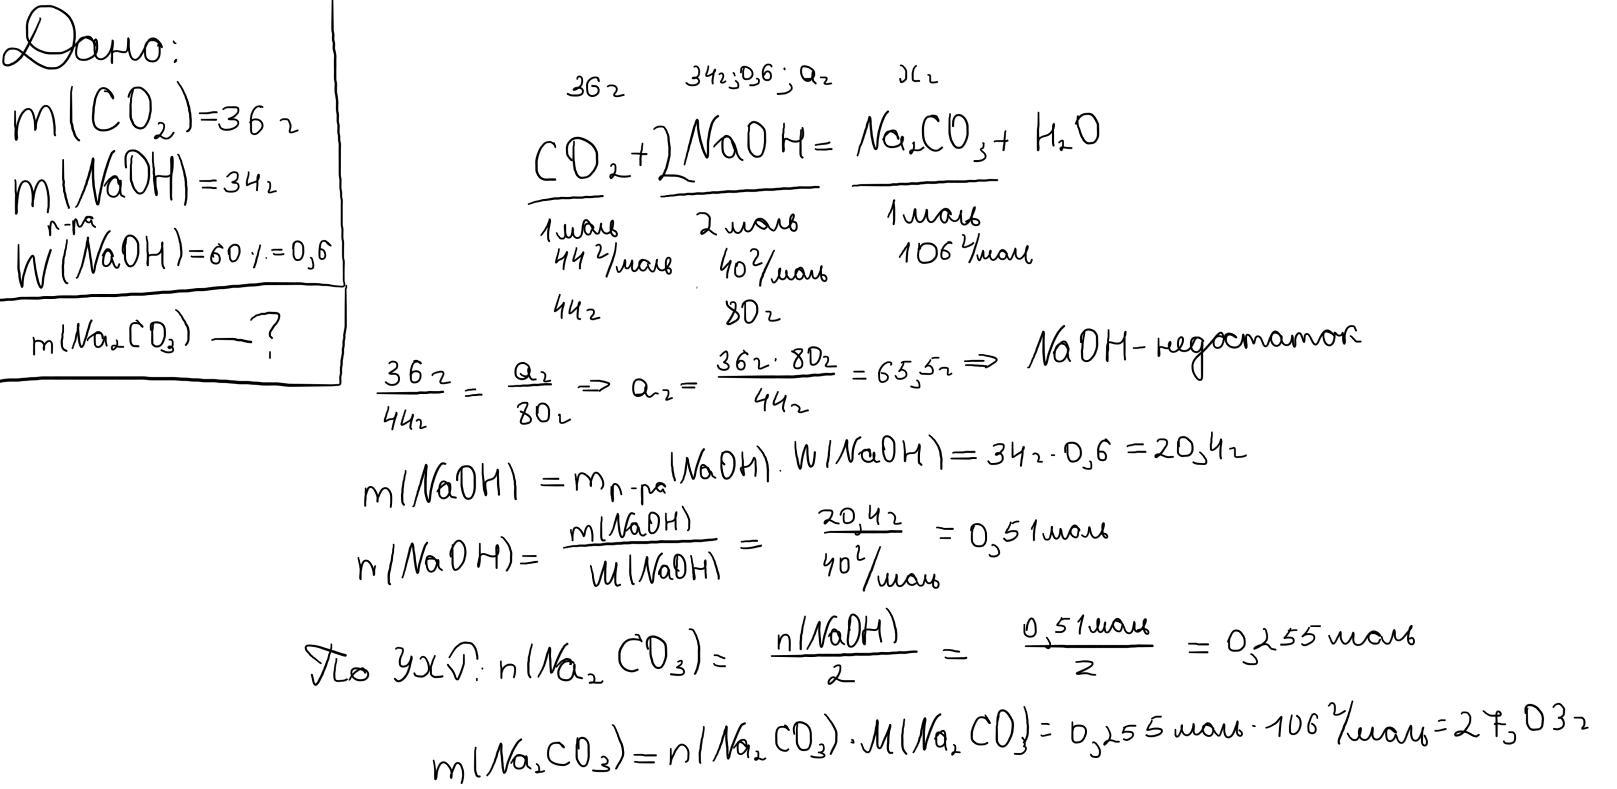 Дано:
m(CO₂)=36г
m(NaOH)=34г
р-ра
W(NaOH)=60%=0,6
m(Na₂CO₃) — ?
36г 34г;0,6;aг xг
CO₂+2NaOH=Na₂CO₃+H₂O
1моль 2моль 1моль
44г/моль 40г/моль 106г/моль
44г 80г
36г/44г = aг/80г => aг = 36г·80г/44г = 65,5г => NaOH-недостаток
m(NaOH) = mр-ра(NaOH)·W(NaOH)=34г·0,6=20,4г
n(NaOH)= m(NaOH)/M(NaOH) = 20,4г/40г/моль = 0,51моль
По УХР: n(Na₂CO₃)= n(NaOH)/2 = 0,51моль/2 = 0,255моль
m(Na₂CO₃)=n(Na₂CO₃)·M(Na₂CO₃)=0,255моль·106г/моль=27,03г